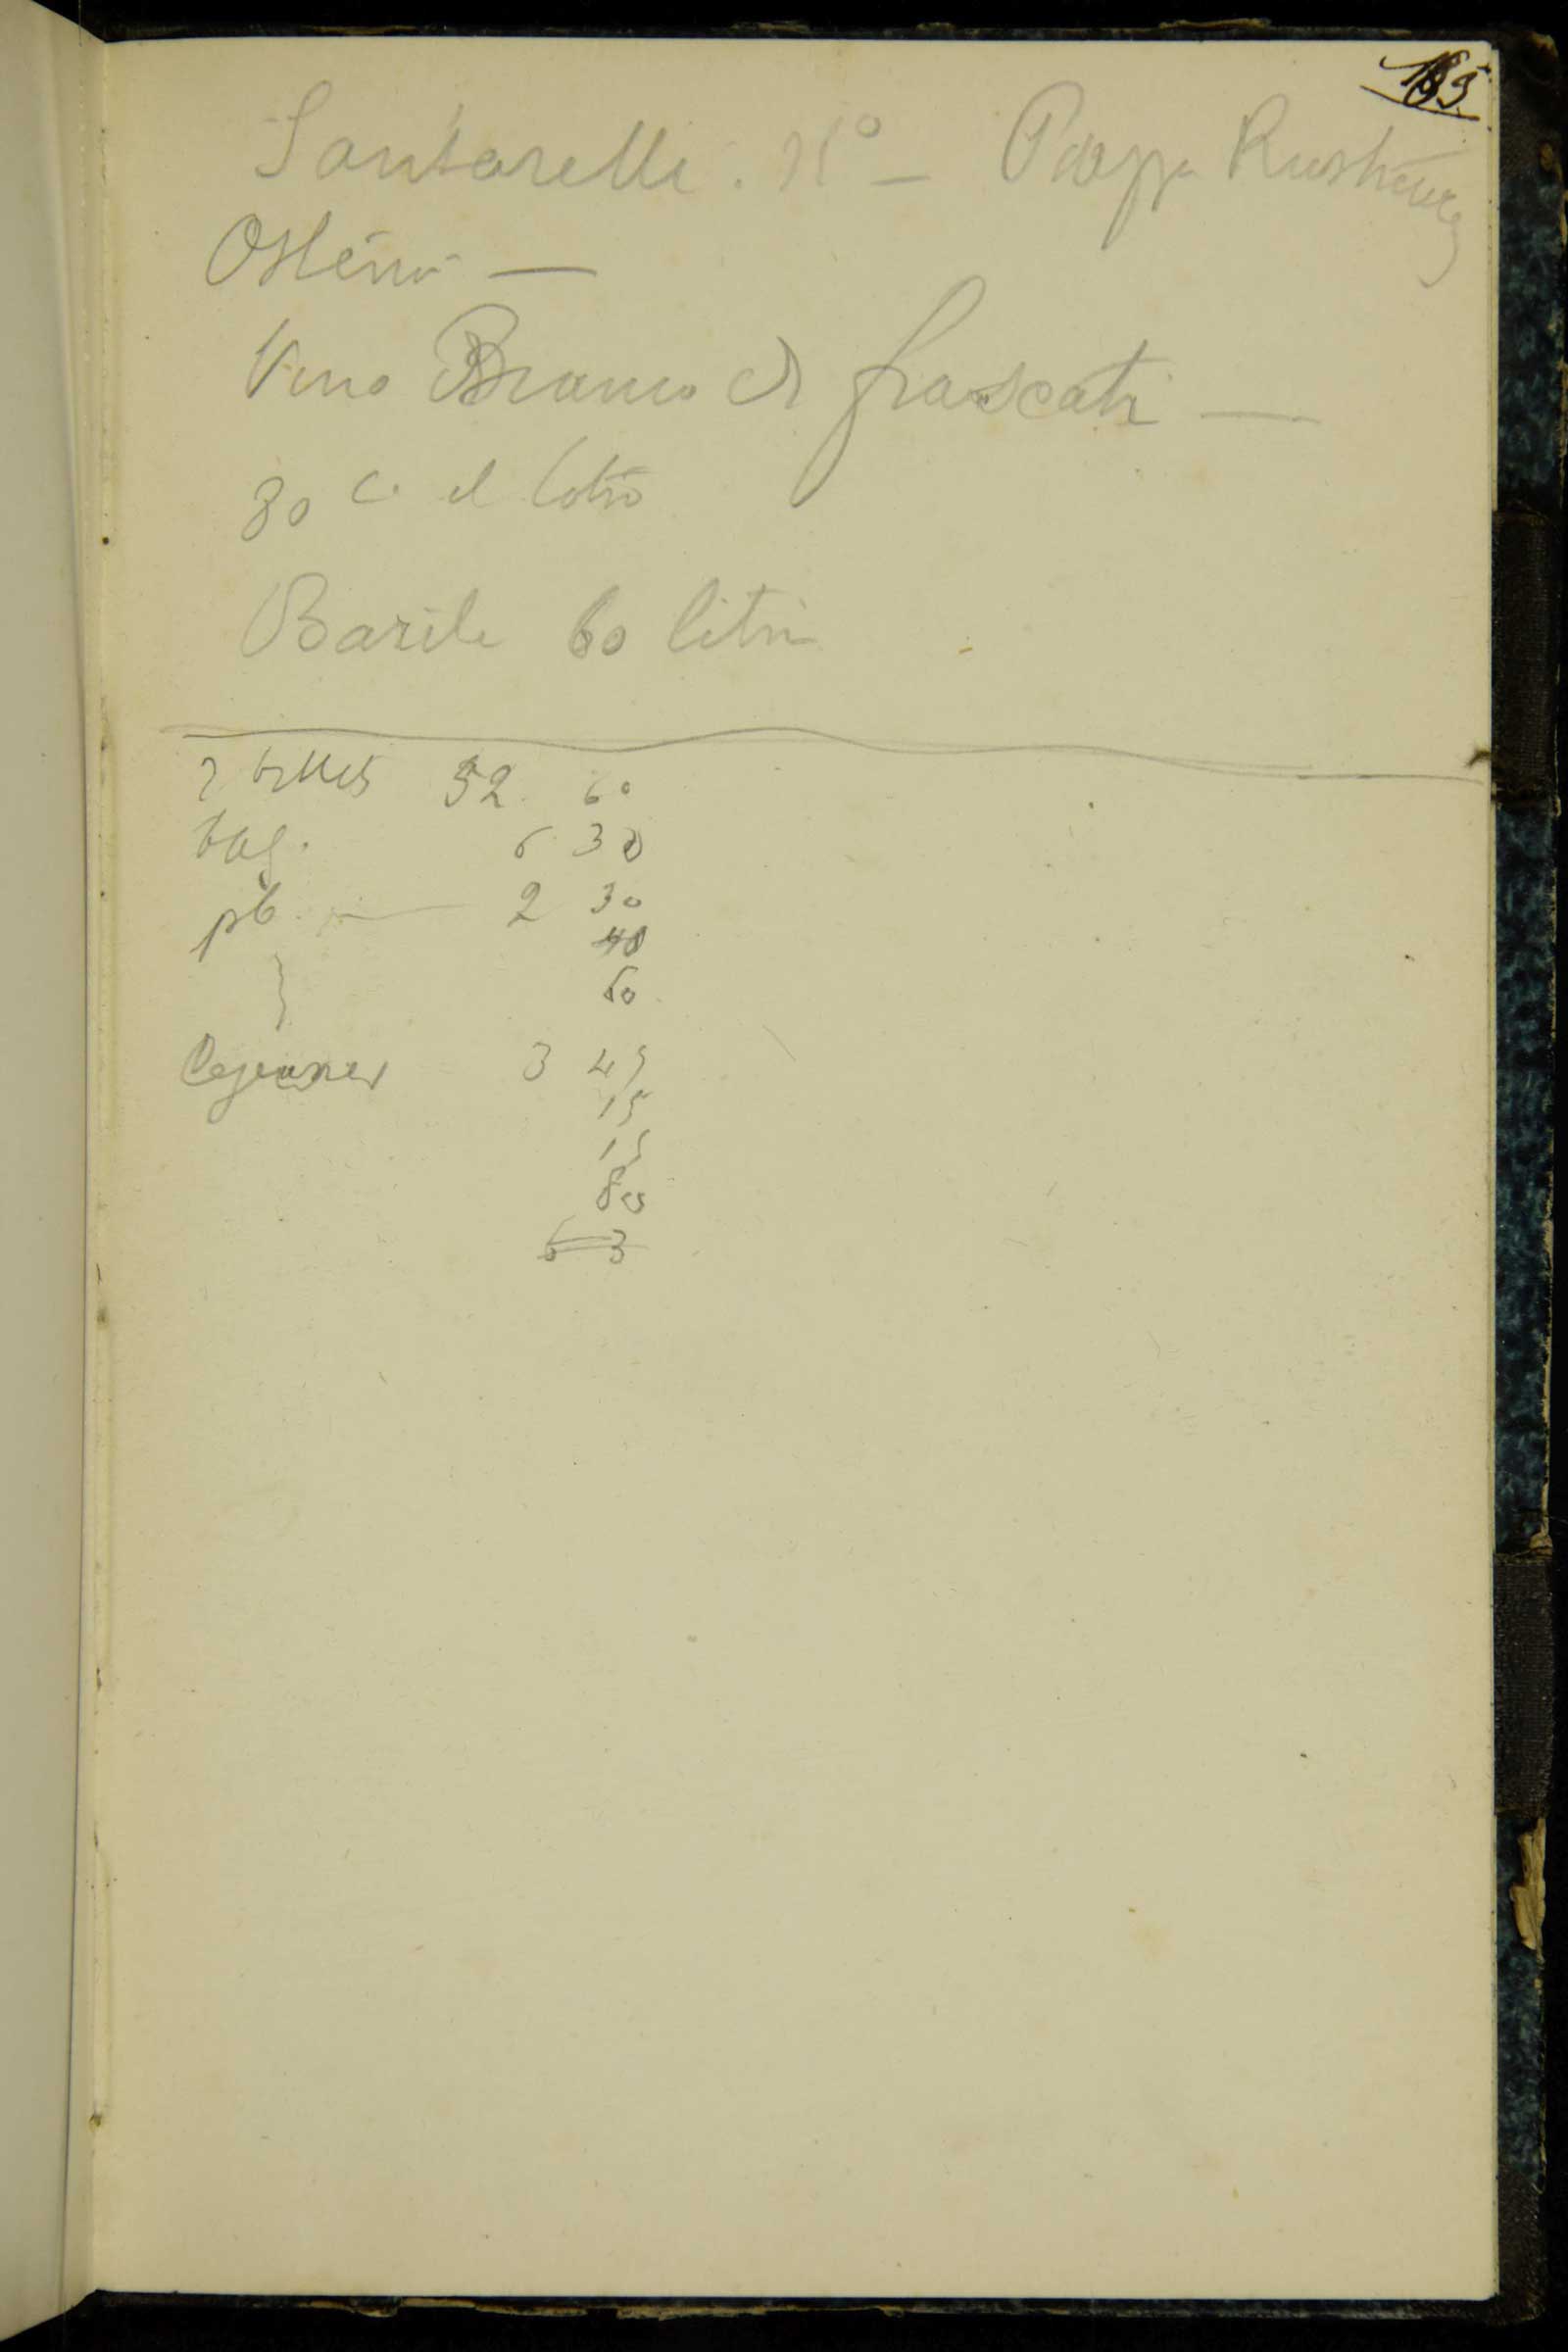 185
Santarelli. N° — Piazza Rusticucci
Osteria —
Vino Bianco di frascati —
80 c. il litro
Barile 60 litri
2 billets 52 60
bag. 6 30
pb — 2 30
40
60
Dejeuner 3 45
15
15
80
6 3